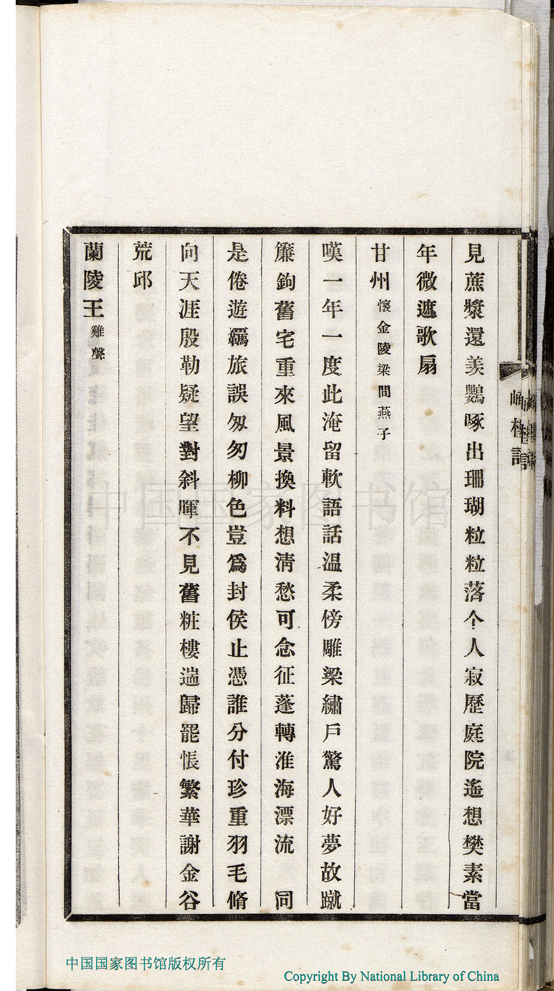 見蔗漿還羨鸚啄出珊瑚粒粒落个人寂歷庭院遙想樊素當
年微遮歌扇
甘州懷金陵梁間燕子
嘆一年一度此淹留軟語話温柔傍雕梁繡戶驚人好夢故蹴
簾鉤舊宅重來風景換料想清愁可念征蓬轉淮海漂流 同
是倦遊羈旅誤匆匆柳色豈爲封侯止憑誰分付珍重羽毛脩
向天涯殷勤疑望對斜暉不見舊粧樓遄歸罷悵繁華謝金谷
荒邱
蘭陵王雞聲
中国国家图书馆
中国国家图书馆版权所有
Copyright By National Library of China